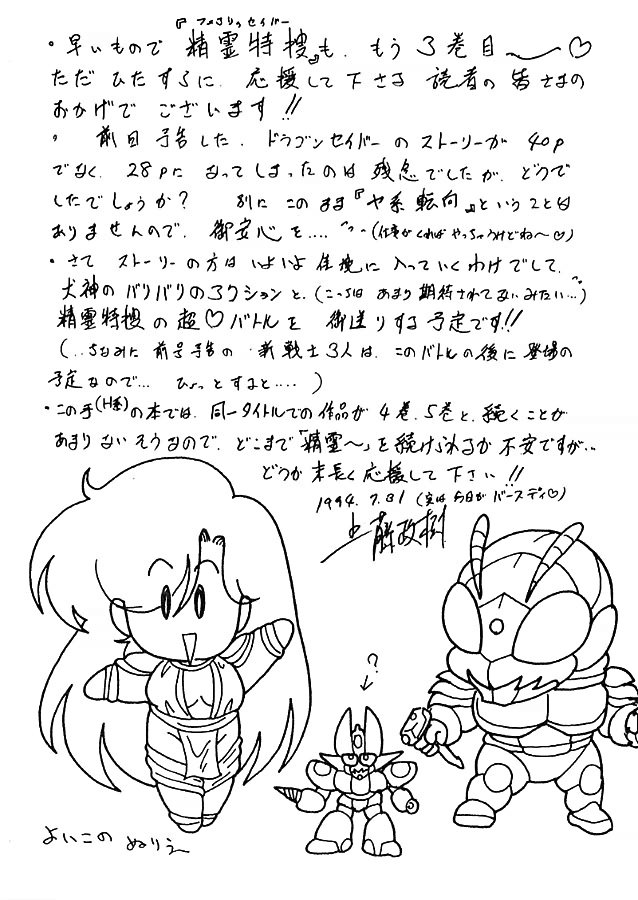 『フェアリィセイバー
・早いもので 精霊特捜』も、もう 3巻目〜〜♡
ただ ひたすらに、応援して下さる 読者の 皆さまの
おかげで ございます!!
・ 前回 予告した、ドラゴンセイバーの ストーリーが 40P
でなく、28Pに なってしまったのは 残念でしたが、どうで
したでしょうか? 別に このまま『ヤ系転向』ということは
ありませんので、御安心を…… (仕事がくれば やっちゃうけどね〜♡)
・さて ストーリーの方は いよいよ 佳境に 入っていくわけでして、
犬神の バリバリの アクションと、(こっちは あまり 期待されてないみたい…)
精霊特捜の 超♡バトルを 御送りする 予定です!!
(…ちなみに 前号予告の 新戦士3人は、このバトルの後に 登場の
予定なので… ひょっとすると…… )
・この手(H系)の本では、同一タイトルでの作品が 4巻、5巻と、続くことが
あまりないそうなので、どこまで「精霊〜」を続けられるか 不安ですが…
どうか 末長く 応援して 下さい!!
1994.7.31 (実は今日が バースディ♡)
藤政樹
?
よいこの ぬりえ